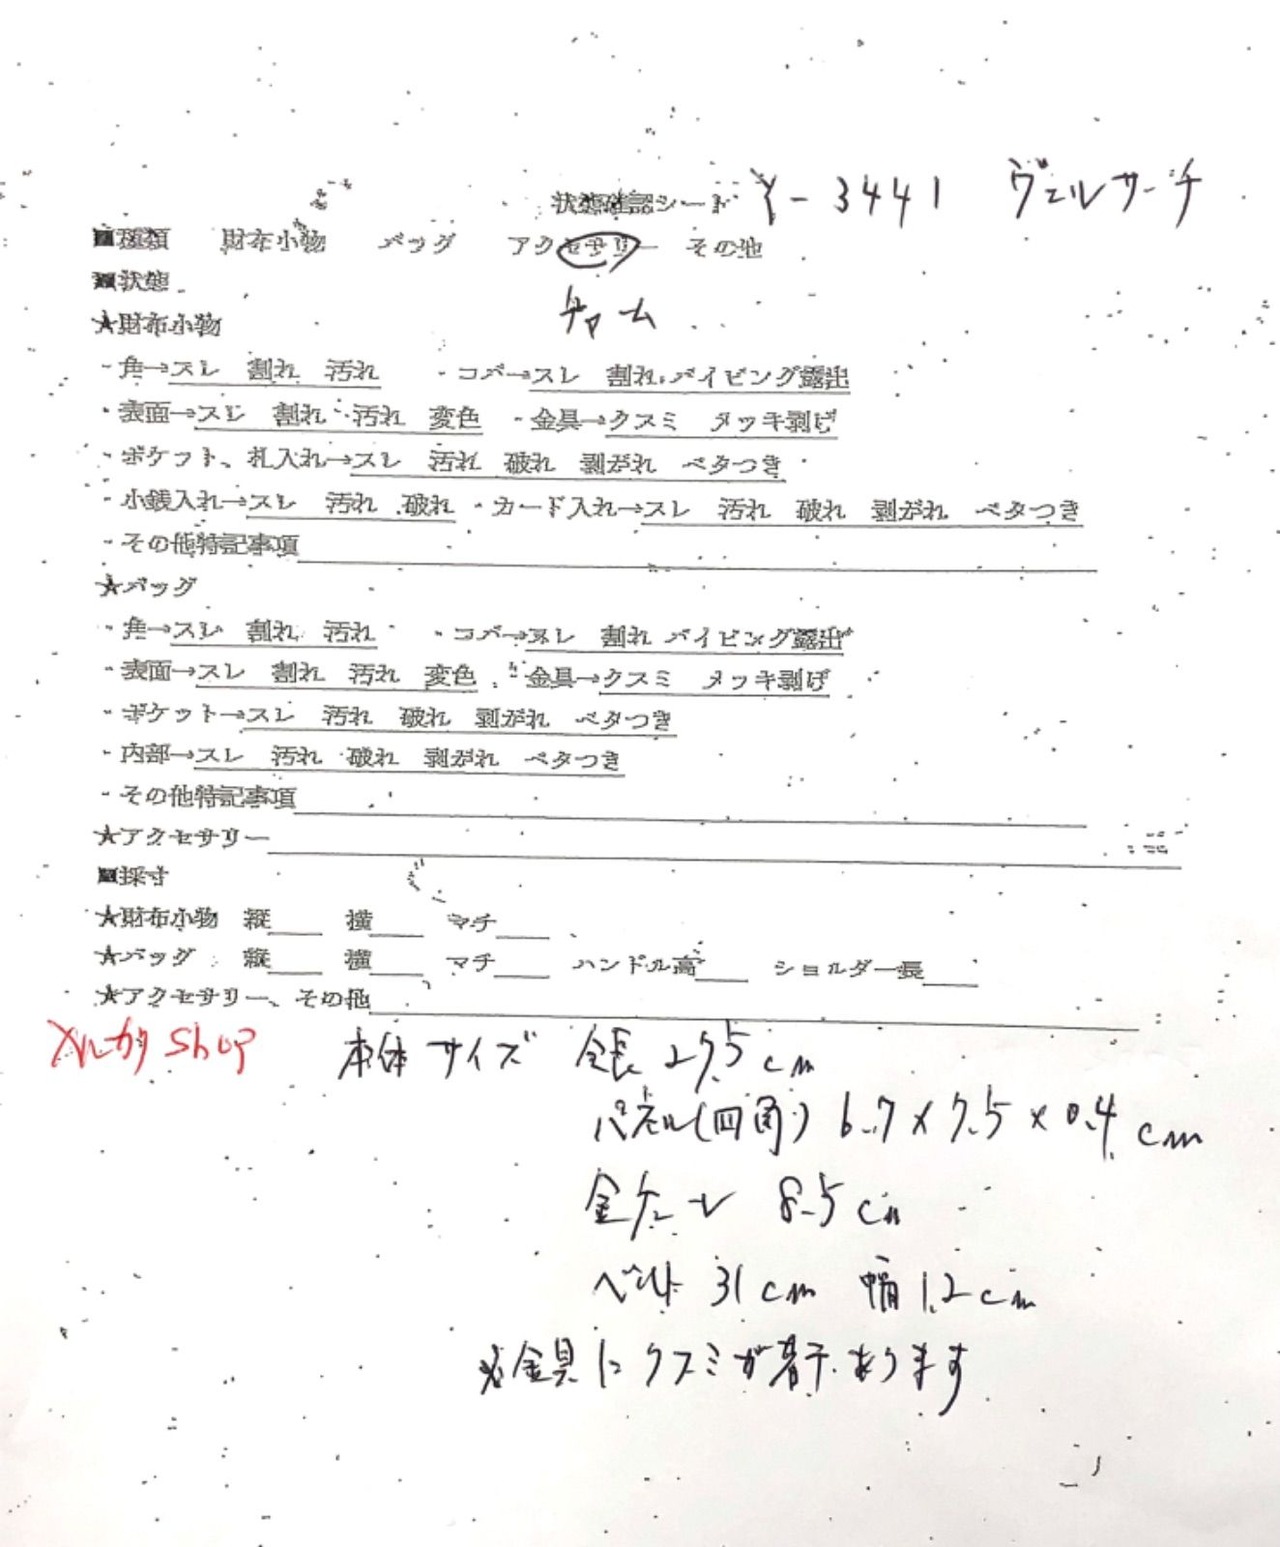 状態確認シート Y-3441 ヴェルサーチ
■種類 財布小物 バッグ アクセサリー その他
チャーム
■状態
★財布小物
・角→スレ 割れ 汚れ ・コバ→スレ 割れ パイピング露出
・表面→スレ 割れ 汚れ 変色 ・金具→クスミ メッキ剥げ
・ポケット、札入れ→スレ 汚れ 破れ 剥がれ ベタつき
・小銭入れ→スレ 汚れ 破れ ・カード入れ→スレ 汚れ 破れ 剥がれ ベタつき
・その他特記事項
★バッグ
・角→スレ 割れ 汚れ ・コバ→スレ 割れ パイピング露出
・表面→スレ 割れ 汚れ 変色 ・金具→クスミ メッキ剥げ
・ポケット→スレ 汚れ 破れ 剥がれ ベタつき
・内部→スレ 汚れ 破れ 剥がれ ベタつき
・その他特記事項
★アクセサリー
■採寸
★財布小物 縦 横 マチ
★バッグ 縦 横 マチ ハンドル高 ショルダー長
★アクセサリー、その他
メルカリ shop 本体サイズ 全長 27.5cm
パネル(四角) 6.7×7.5×0.4cm
8.5cm
ベルト 31cm 幅1.2cm
※金具にクスミが若干あります